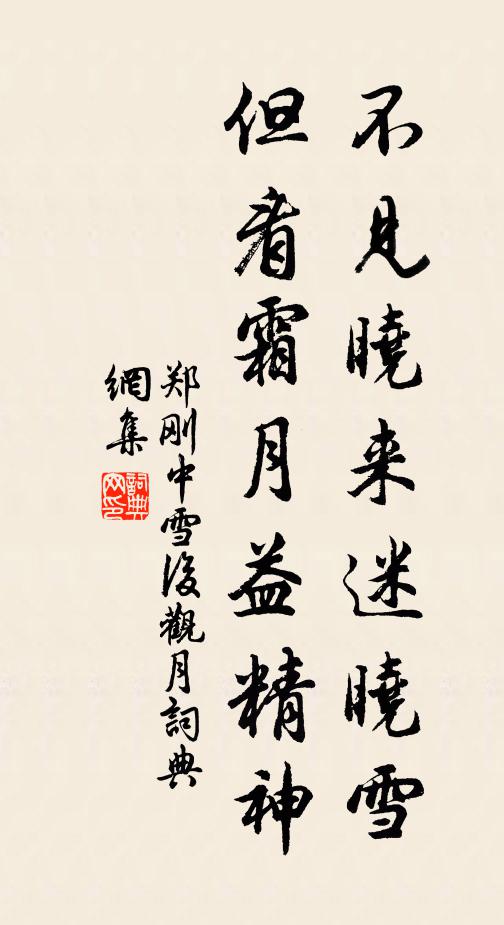 不見曉来迷曉雪
但看霜月益精神
郑刚中雪後觀月詞典
網集
詞典
网印